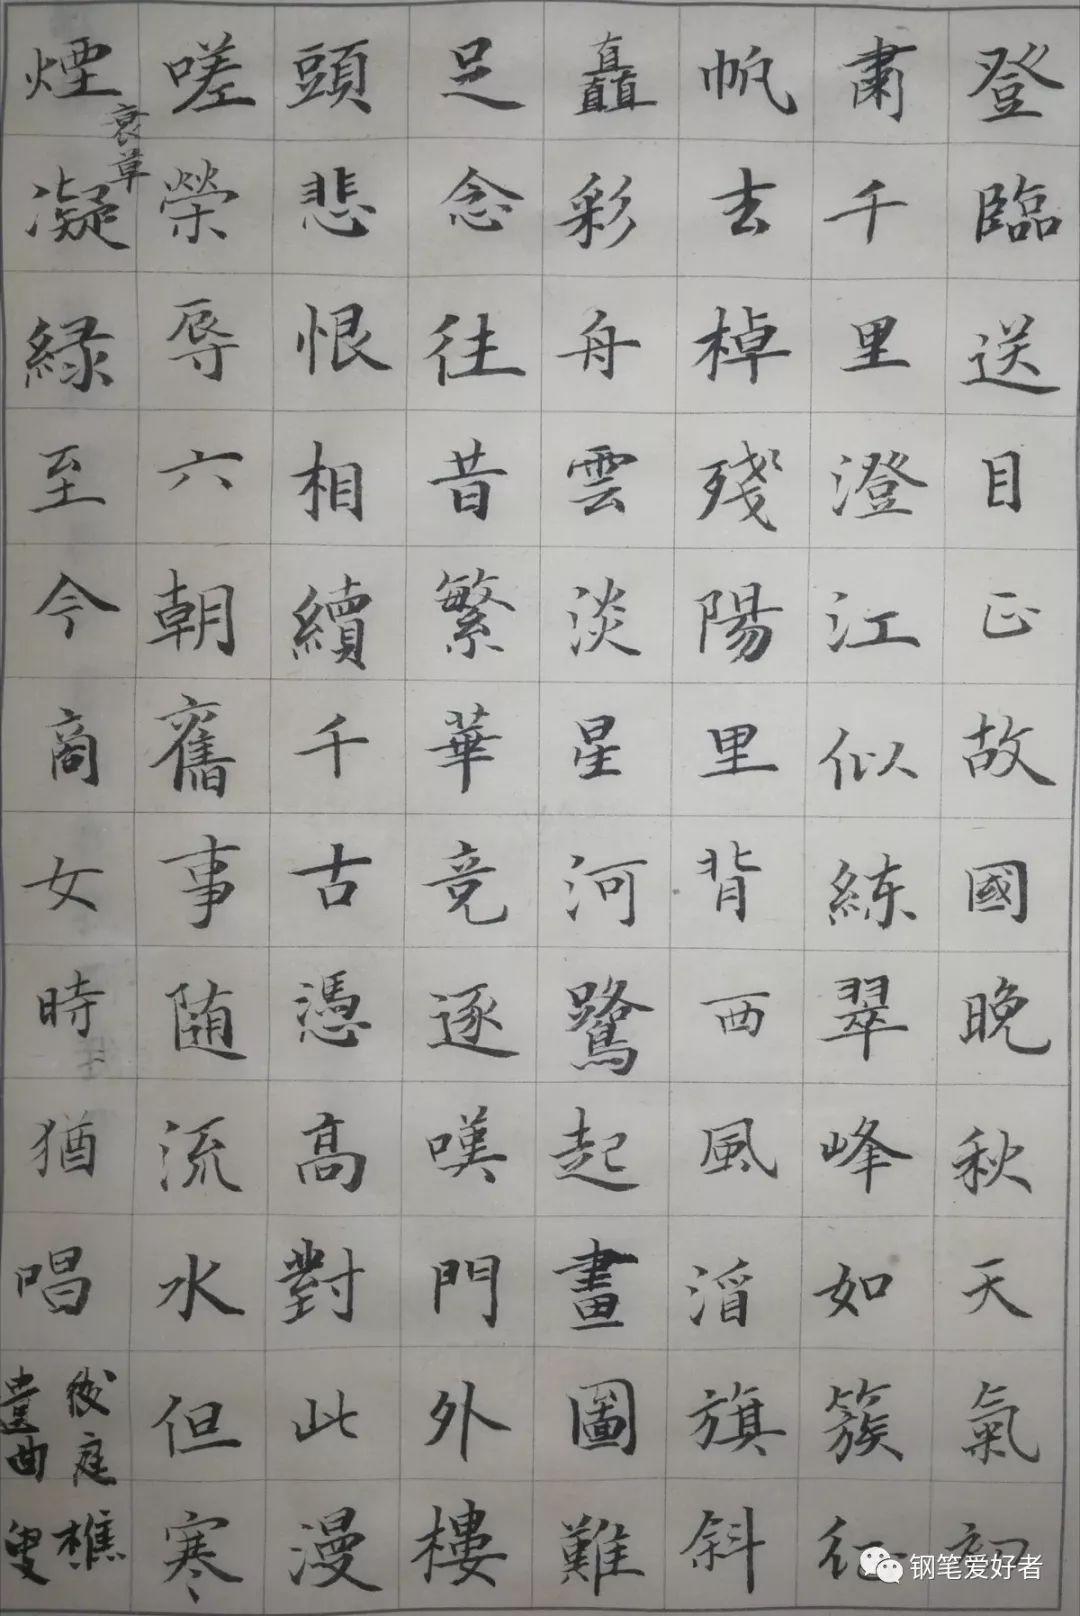 登臨送目正故國晚秋天氣初
肅千里澄江似練翠峰如簇征
帆去棹殘陽里背西風酒旗斜
矗彩舟雲淡星河鷺起畫圖難
足念往昔繁華竞逐嘆門外樓
頭悲恨相續千古憑高對此漫
嗟榮辱六朝舊事随流水但寒
煙衰草凝緑至今商女時、猶唱後庭遺曲
樵叟
钢笔爱好者